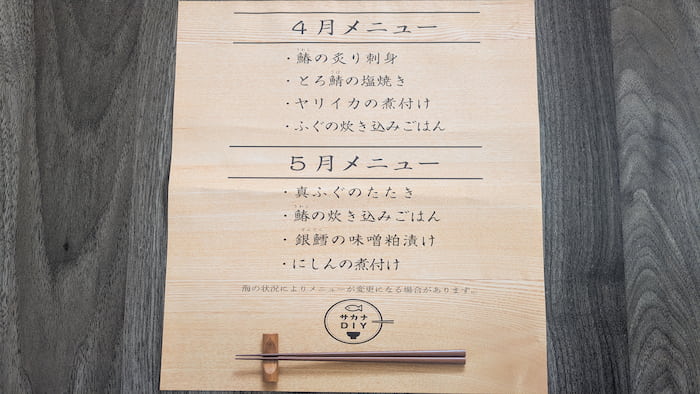 4月メニュー
・鰆の炙り刺身
・とろ鯖の塩焼き
・ヤリイカの煮付け
・ふぐの炊き込みごはん
5月メニュー
・真ふぐのたたき
・鰆の炊き込みごはん
・銀鱈の味噌粕漬け
・にしんの煮付け
海の状況によりメニューが変更になる場合があります。
サカナ
DIY